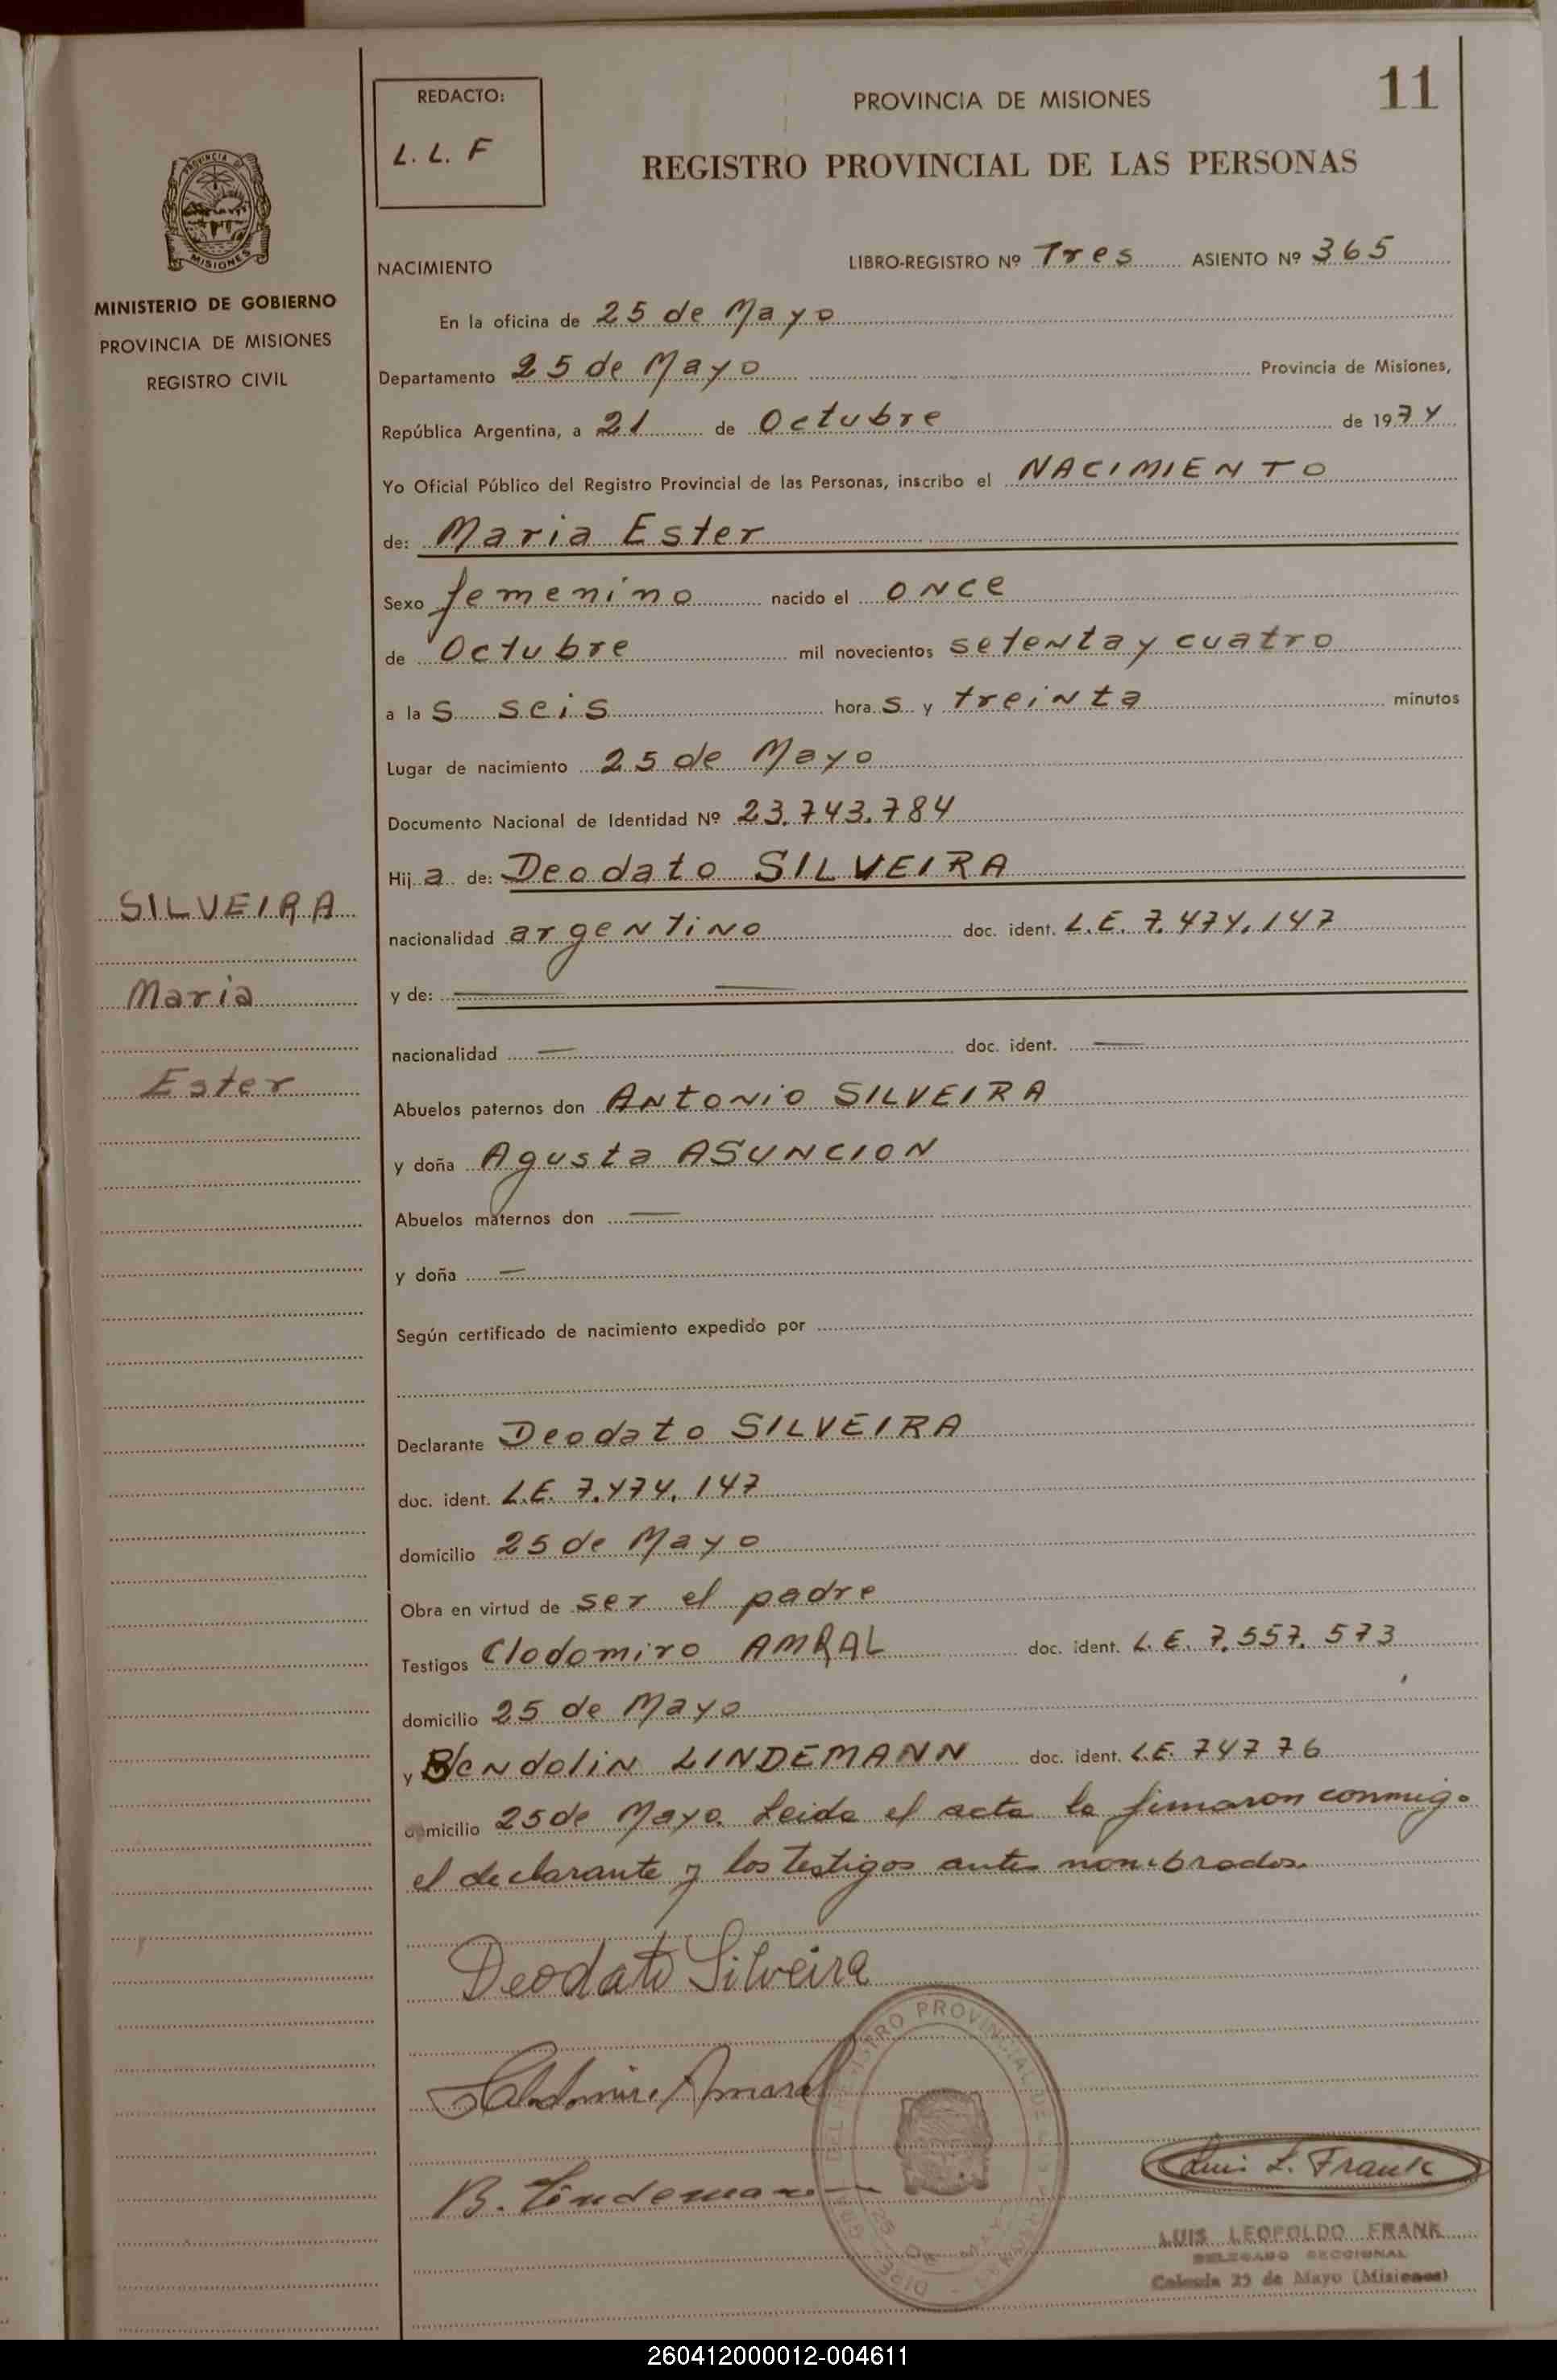 REDACTO:
L. L. F
PROVINCIA DE MISIONES
11
REGISTRO PROVINCIAL DE LAS PERSONAS
PROVINCIA DE
MISIONES
MINISTERIO DE GOBIERNO
PROVINCIA DE MISIONES
REGISTRO CIVIL
NACIMIENTO
LIBRO-REGISTRO Nº Tres ASIENTO Nº 365
En la oficina de 25 de Mayo
Departamento 25 de Mayo Provincia de Misiones,
República Argentina, a 21 de Octubre de 1974
Yo Oficial Público del Registro Provincial de las Personas, inscribo el NACIMIENTO
de: Maria Ester
Sexo femenino nacido el once
de Octubre mil novecientos setenta y cuatro
a las seis horas y treinta minutos
Lugar de nacimiento 25 de Mayo
Documento Nacional de Identidad Nº 23.743.784
Hija de: Deodato SILVEIRA
SILVEIRA
Maria
Ester
nacionalidad argentino doc. ident. L.E. 7.474.147
y de: — —
nacionalidad — doc. ident. —
Abuelos paternos don Antonio SILVEIRA
y doña Agusta ASUNCION
Abuelos maternos don —
y doña —
Según certificado de nacimiento expedido por
Declarante Deodato SILVEIRA
doc. ident. L.E. 7.474.147
domicilio 25 de Mayo
Obra en virtud de ser el padre
Testigos Clodomiro AMRAL doc. ident. L.E. 7.557.573
domicilio 25 de Mayo
y Bendolin LINDEMANN doc. ident. L.E. 74776
domicilio 25 de Mayo. Leida el acta la fimaron conmigo
el declarante y los testigos antes nombrados.
Deodato Silveira
Clodomiro Amaral
B. Lindemann
REGISTRO PROVINCIAL DE
25 DE MAYO
Luis L. Frank
LUIS LEOPOLDO FRANK
DELEGADO SECCIONAL
Colonia 25 de Mayo (Misiones)
260412000012-004611